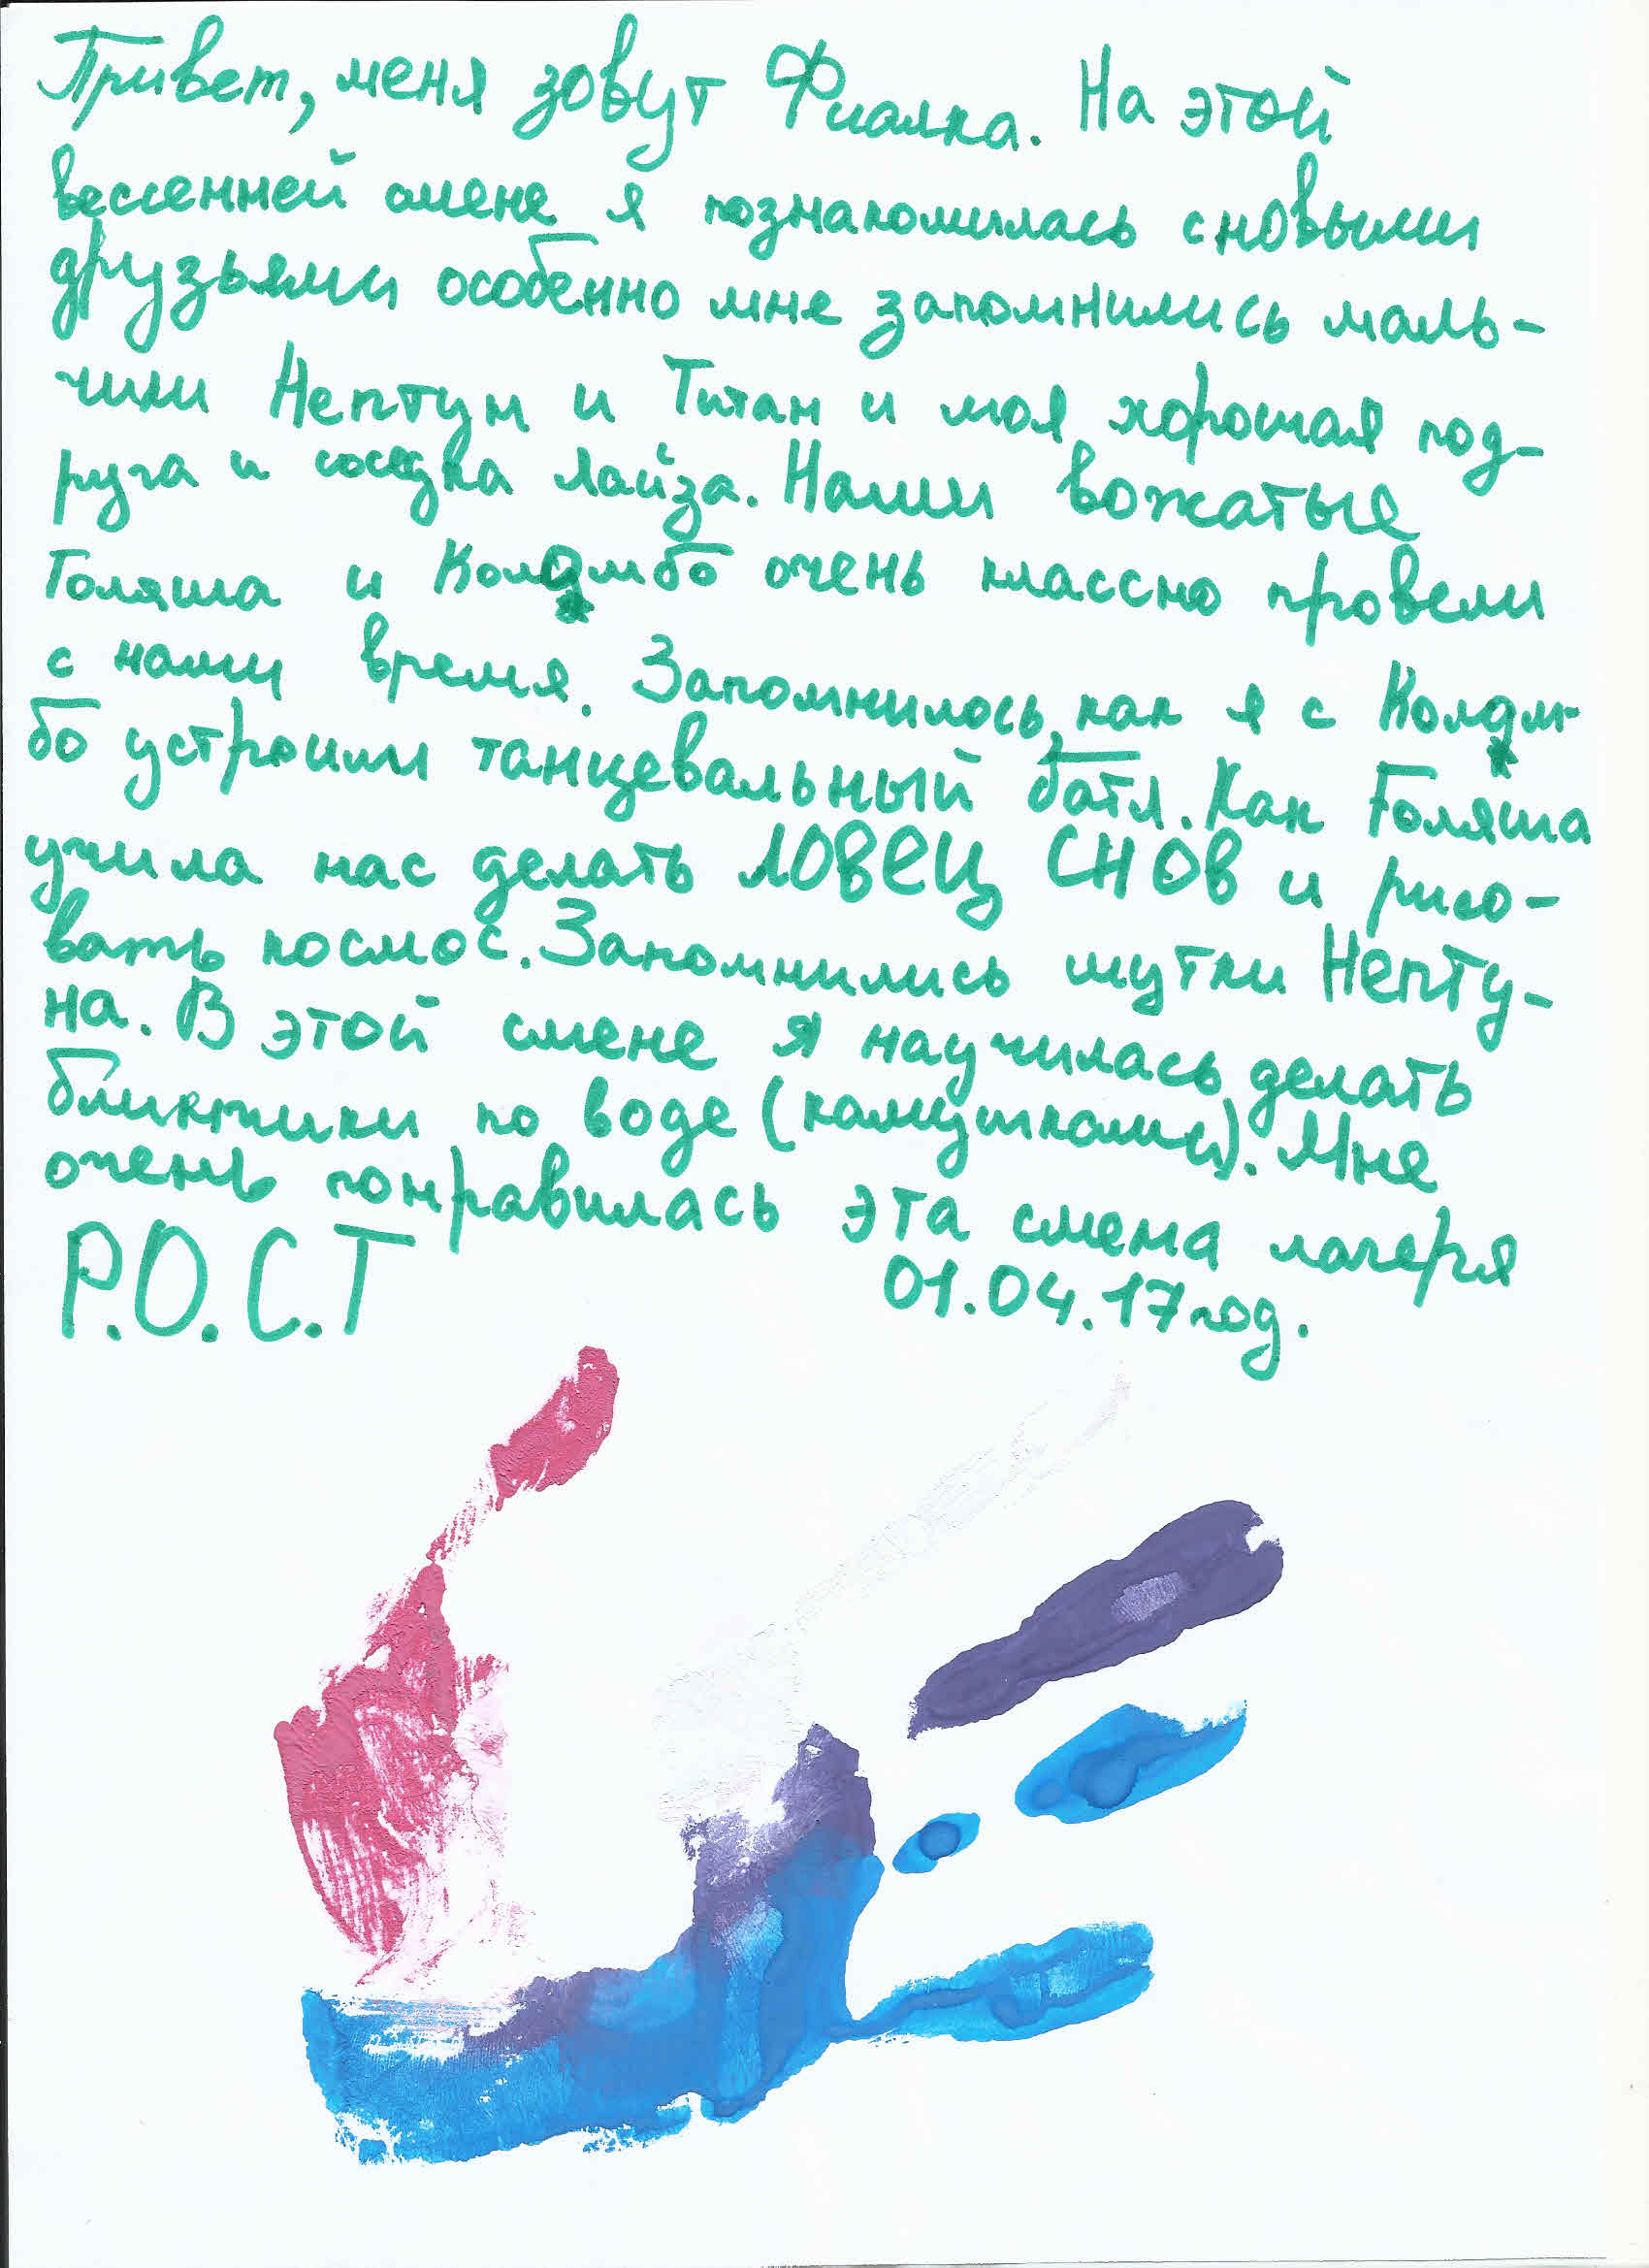 Привет, меня зовут Фиалка. На этой
вессенней смене я познакомилась сновыми
друзьями особенно мне запомнились маль-
чики Нептун и Титан и моя хорошая под-
руга и соседка Лайза. Наши вожатые
Голяша и Коламбо очень классно провели
с нами время. Запомнилось, как я с Колам-
бо устроили танцевальный батл. Как Голяша
учила нас делать ловец снов и рисо-
вать космос. Запомнились шутки Непту-
на. В этой смене я научилась делать
по воде (камушками). Мне
очень понравилась эта смена лагеря
Р.О.С.Т 01.04.17год.